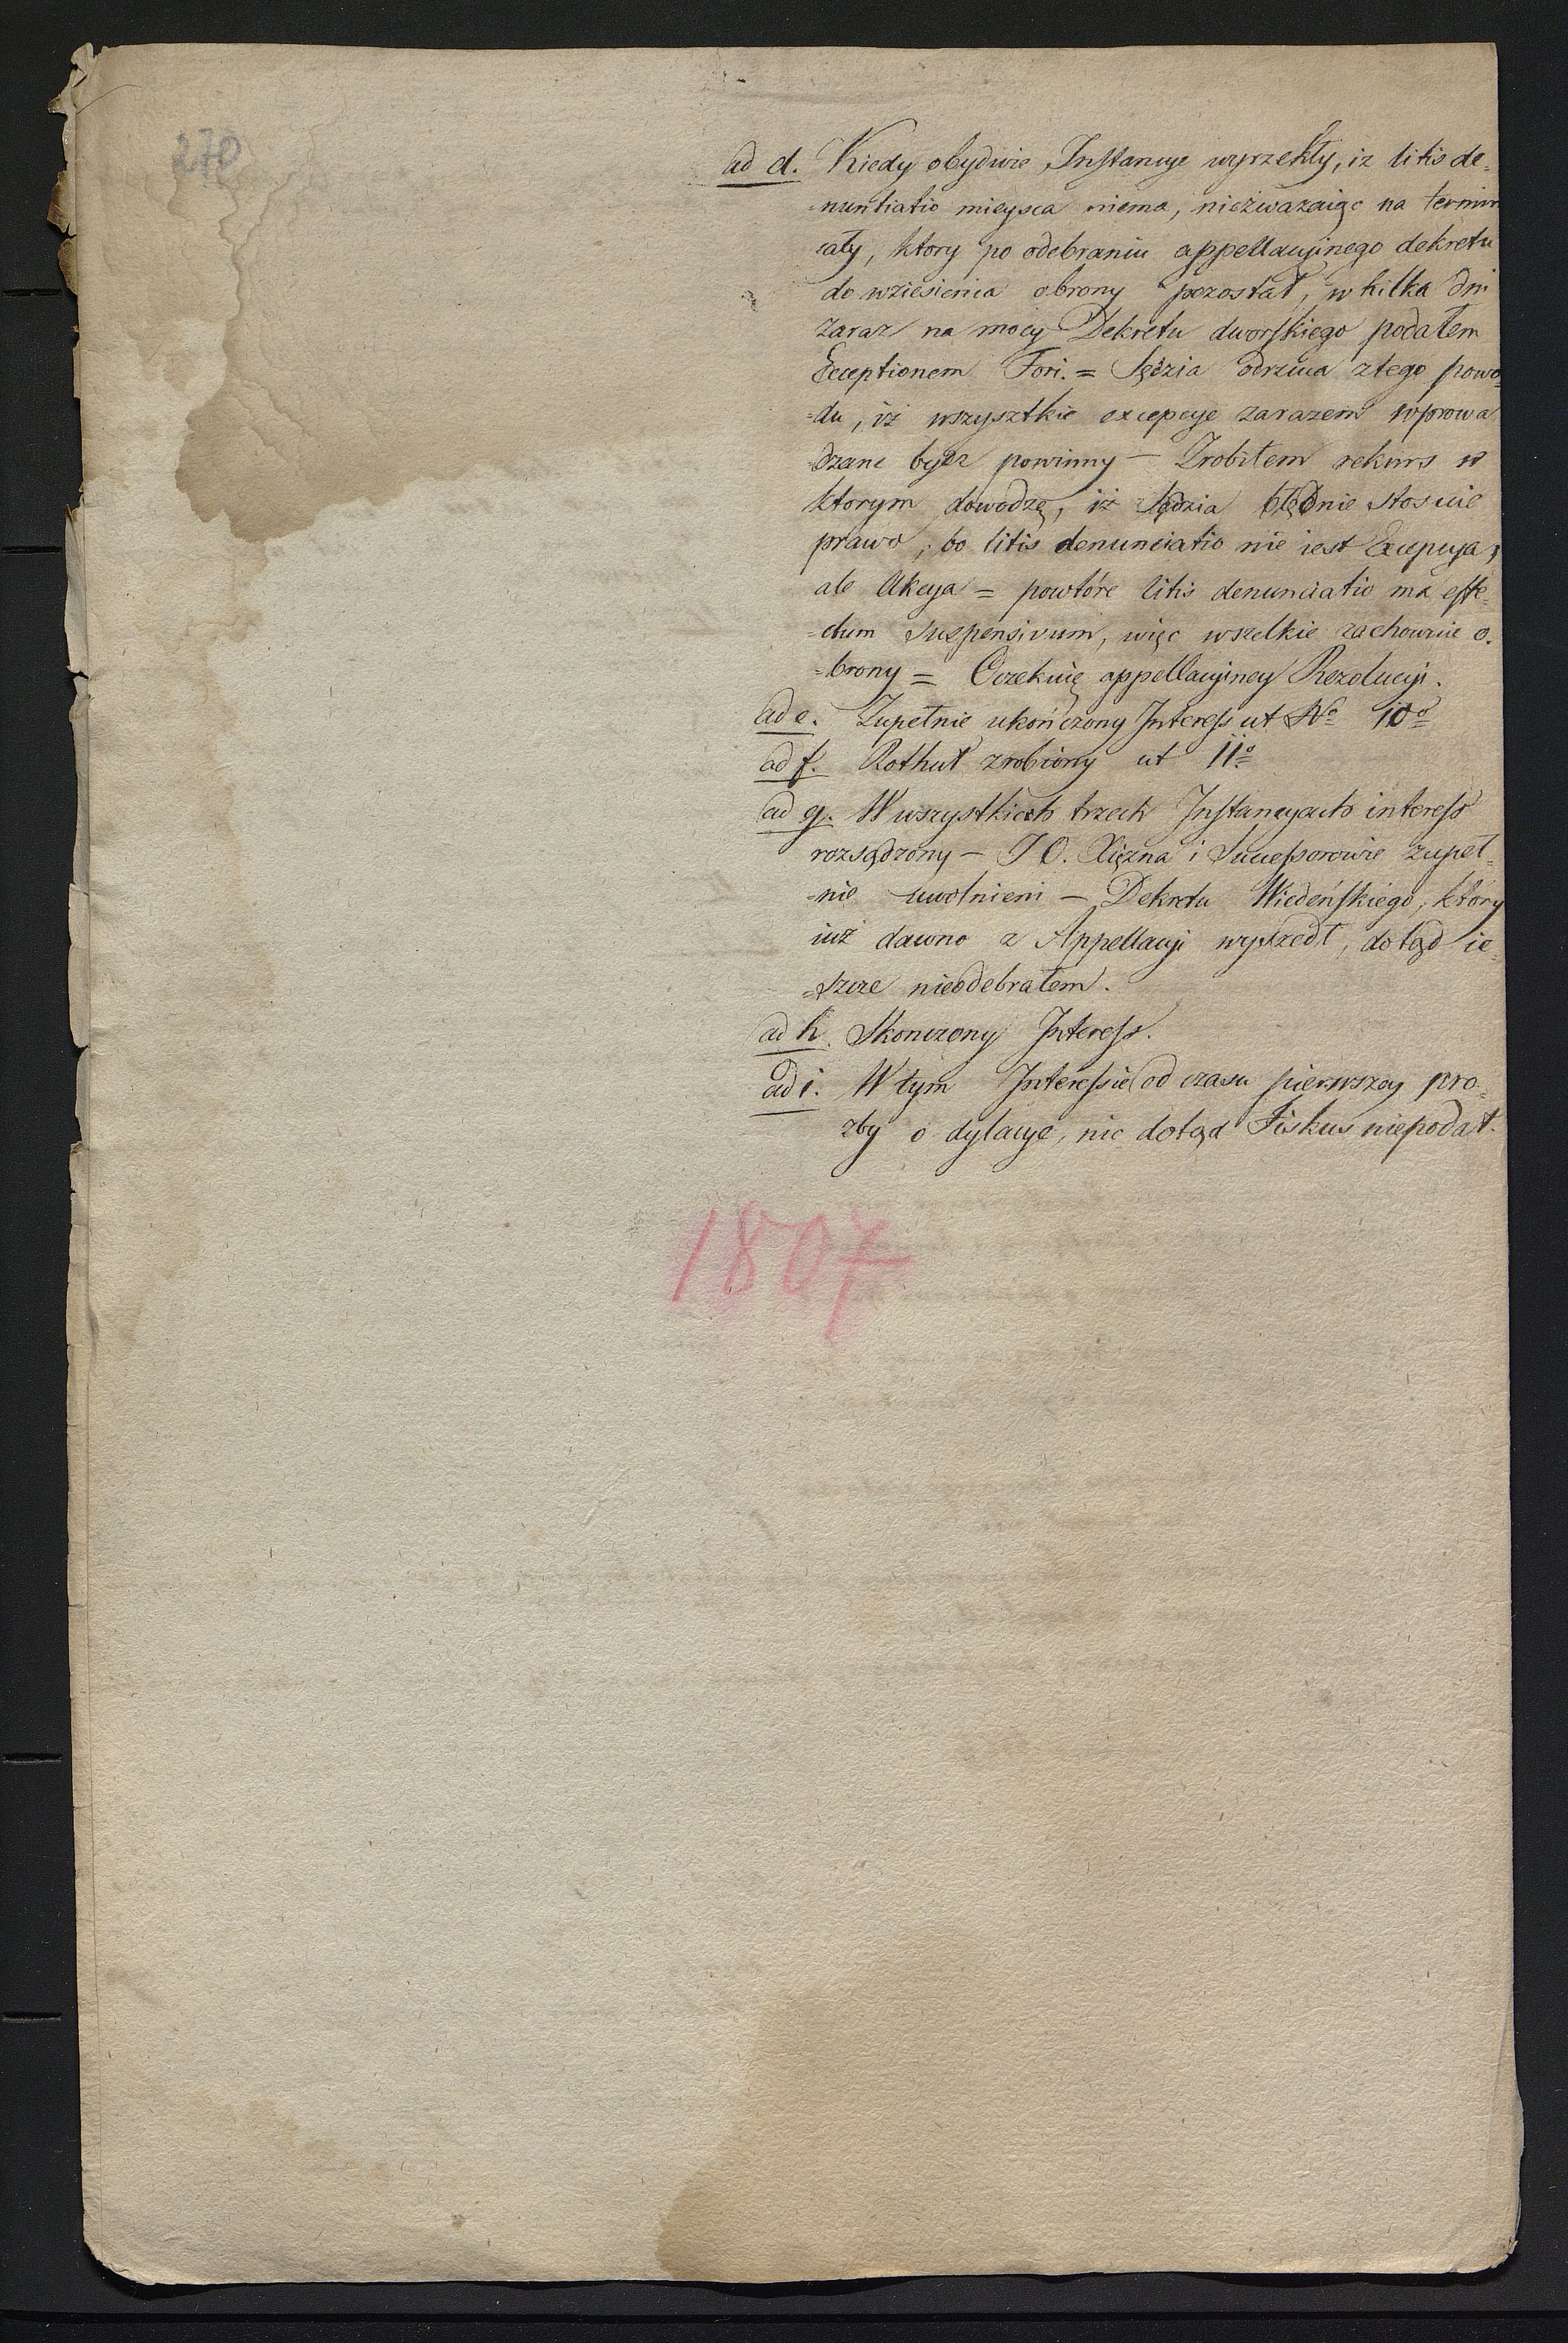 270
ad d. Kiedy obydwie Instancye wyrzekły, iz litis de=
=nuntiatio mieysca niema, niezwazaiąc na termin
cały, ktory po odebraniu appellacyinego dekretu
do wziesienia obrony pozostał, w kilka dni
zaraz na mocy Dekretu dworskiego podałem
Exceptionem Fori. = Sędzia odrzuca z tego powo
=du, iż wszysztkie excepcye zarazem wprowa
=dzane bydz powinny — Zrobiłem rekurs w
ktorym dowodzę, iż Sędzia błędnie stosuie
prawo, bo litis denunciatio nie iest Excepcya,
ale Akcya = powtóre litis denunciatio ma effe=
=ctum suspensivum, więc wszelkie zachowuie o.
=brony = Oczekuię appellacyiney Rezolucyi.
ad e. Zupełnie ukończony Interess ut No 10o
ad f. Rothuł zrobiony ut 11o
ad g. W wszystkich trzech Instancyach interess
rozsądzony — J O. Xiężna i Successorowie zupeł=
=nie uwolnieni — Dekretu Wiedeńskiego, który
iuż dawno z Appellacyi wyszedł, dotąd ie=
=szcze nieodebrałem.
ad h. Skonczony Interess.
ad i. W tym Interessie od czasu pierwszey pro=
zby o dylacye, nic dotąd Fiskus niepodał.
1807